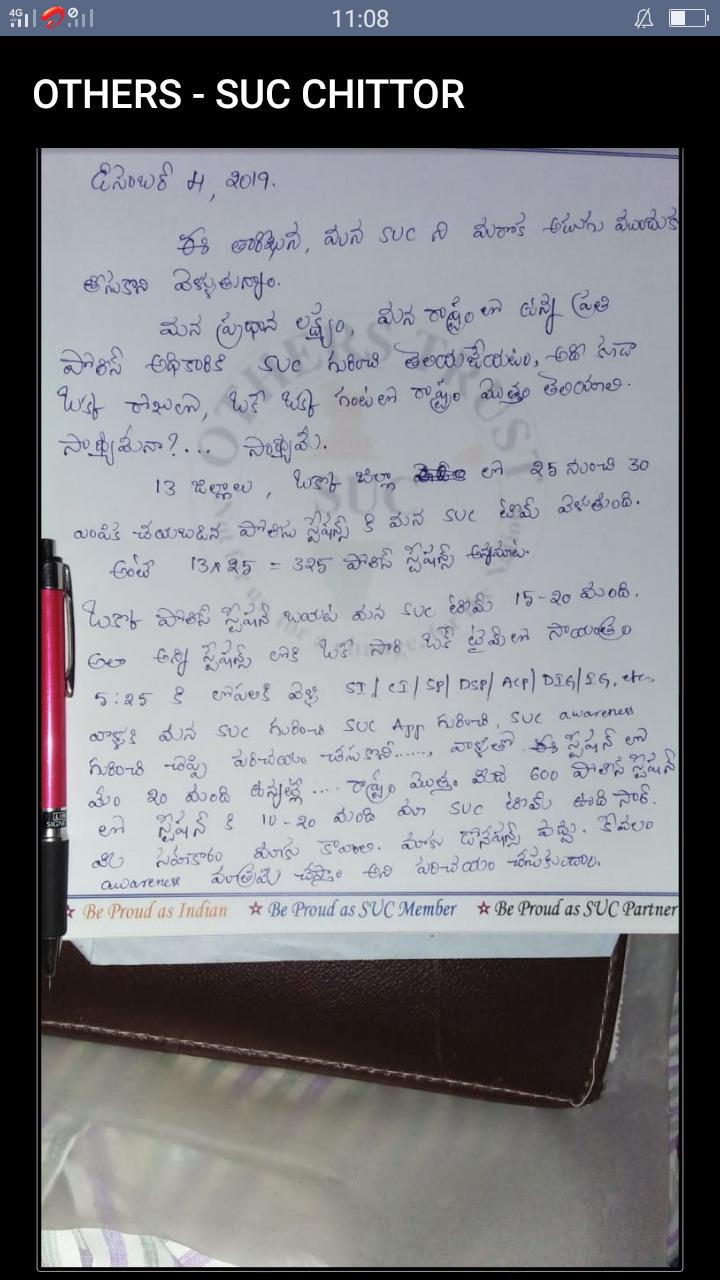 4G
11:08
OTHERS - SUC CHITTOR
డిసెంబర్ 4, 2019.
ఈ తారీఖున, మన SUC ని మరొక అడుగు ముందుకు
తీసుకొని వెళ్ళుతున్నాం.
మన ప్రధాన లక్ష్యం, మన రాష్ట్రంలో ఉన్న ప్రతి
పోలీస్ అధికారికి SUC గురించి తెలియజేయటం, అది కూడా
ఒక్క రోజులో, ఒకే ఒక్క గంటలో రాష్ట్రం మొత్తం తెలియాలి.
సాధ్యమేనా?... సాధ్యమే.
13 జిల్లాలు, ఒక్కొక్క జిల్లా లో 25 నుంచి 30
ఎంపిక చేయబడిన పోలీసు స్టేషన్స్ కి మన SUC టీమ్ వెళుతుంది.
అంటే 13x25 = 325 పోలీస్ స్టేషన్స్ అన్నమాట.
ఒక్కొక్క పోలీస్ స్టేషన్ బయట మన SUC టీమ్ 15-20 మంది.
అలా అన్ని స్టేషన్స్ లోకి ఒకే సారి ఒకే టైమ్ లో సాయంత్రం
5:25 కి లోపలకి వెళ్ళి SI/CI/SP/DSP/ACP/DIG/IG, etc,
వాళ్ళకి మన SUC గురించి SUC App గురించి, SUC awareness
గురించి చెప్పి పరిచయం చేసుకొని......, వాళ్ళతో ఈ స్టేషన్ లో
మేం 20 మంది ఉన్నట్లే .... రాష్ట్రం మొత్తం మీద 600 పోలీస్ స్టేషన్
లో స్టేషన్ కి 10-20 మంది మా SUC టీమ్ ఉంది సార్.
మీ సహకారం మాకు కావాలి. మాకు డొనేషన్స్ వద్దు. కేవలం
awareness మాత్రమే చేస్తాం అని పరిచయం చేసుకుందాం.
OTHERS TRUST
SUC
Be Proud as Indian Be Proud as SUC Member Be Proud as SUC Partner